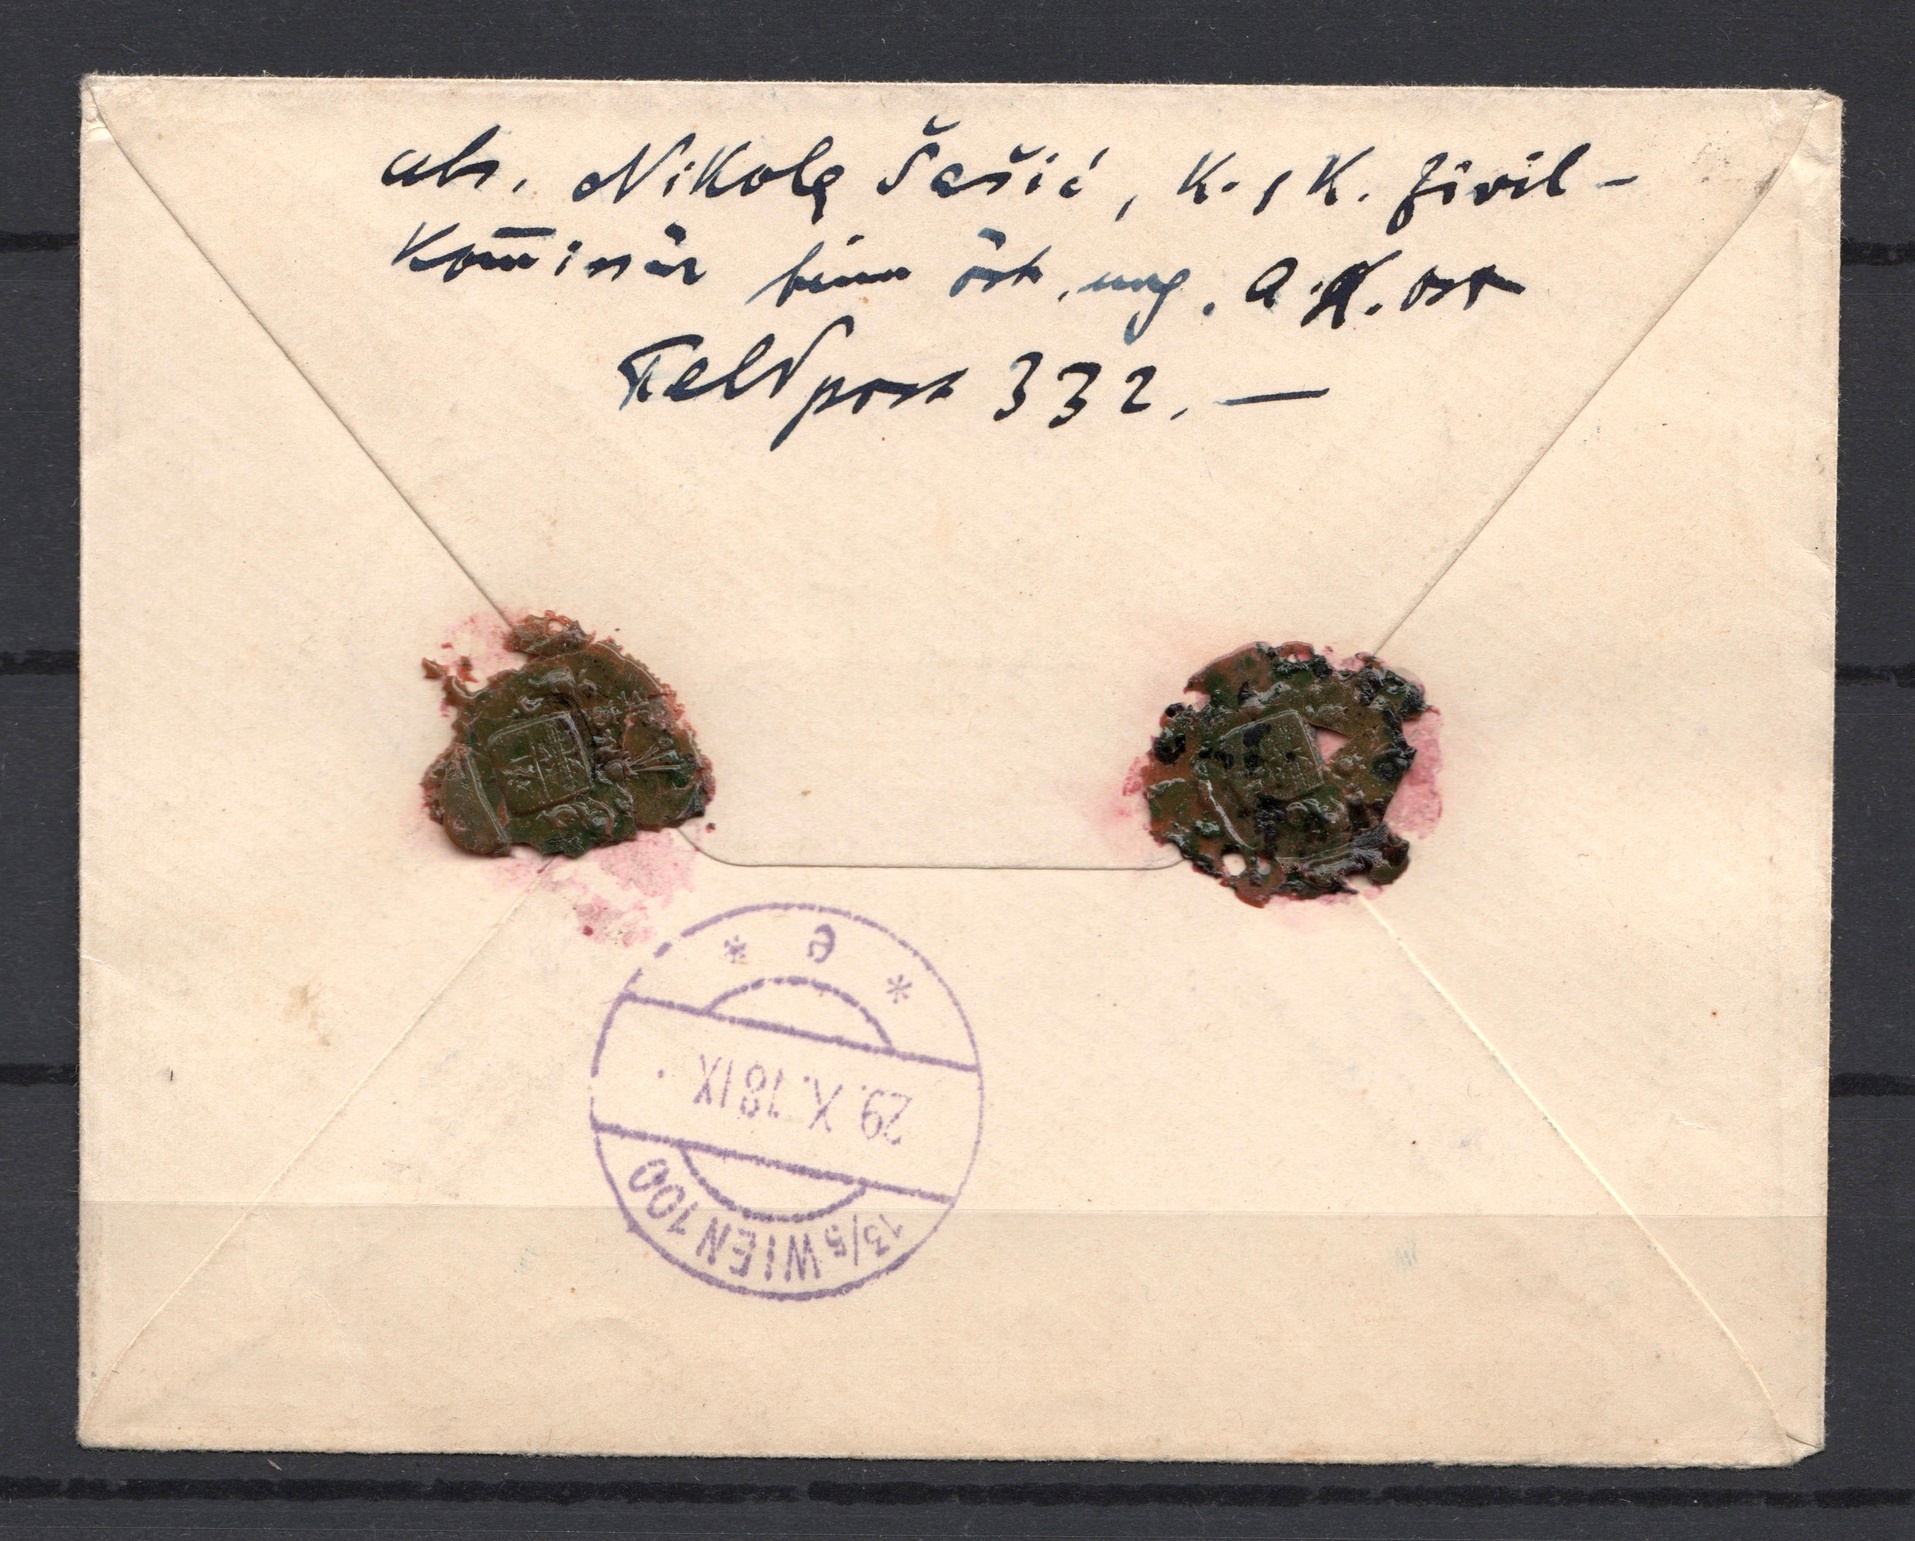 abs. Nikola Šašić, K. u K. Zivil-
Kom̅issär beim öst. ung. A.K. Ost
Feldpost 332. —
* e *
29.X.18 IX
13/5 WIEN 100